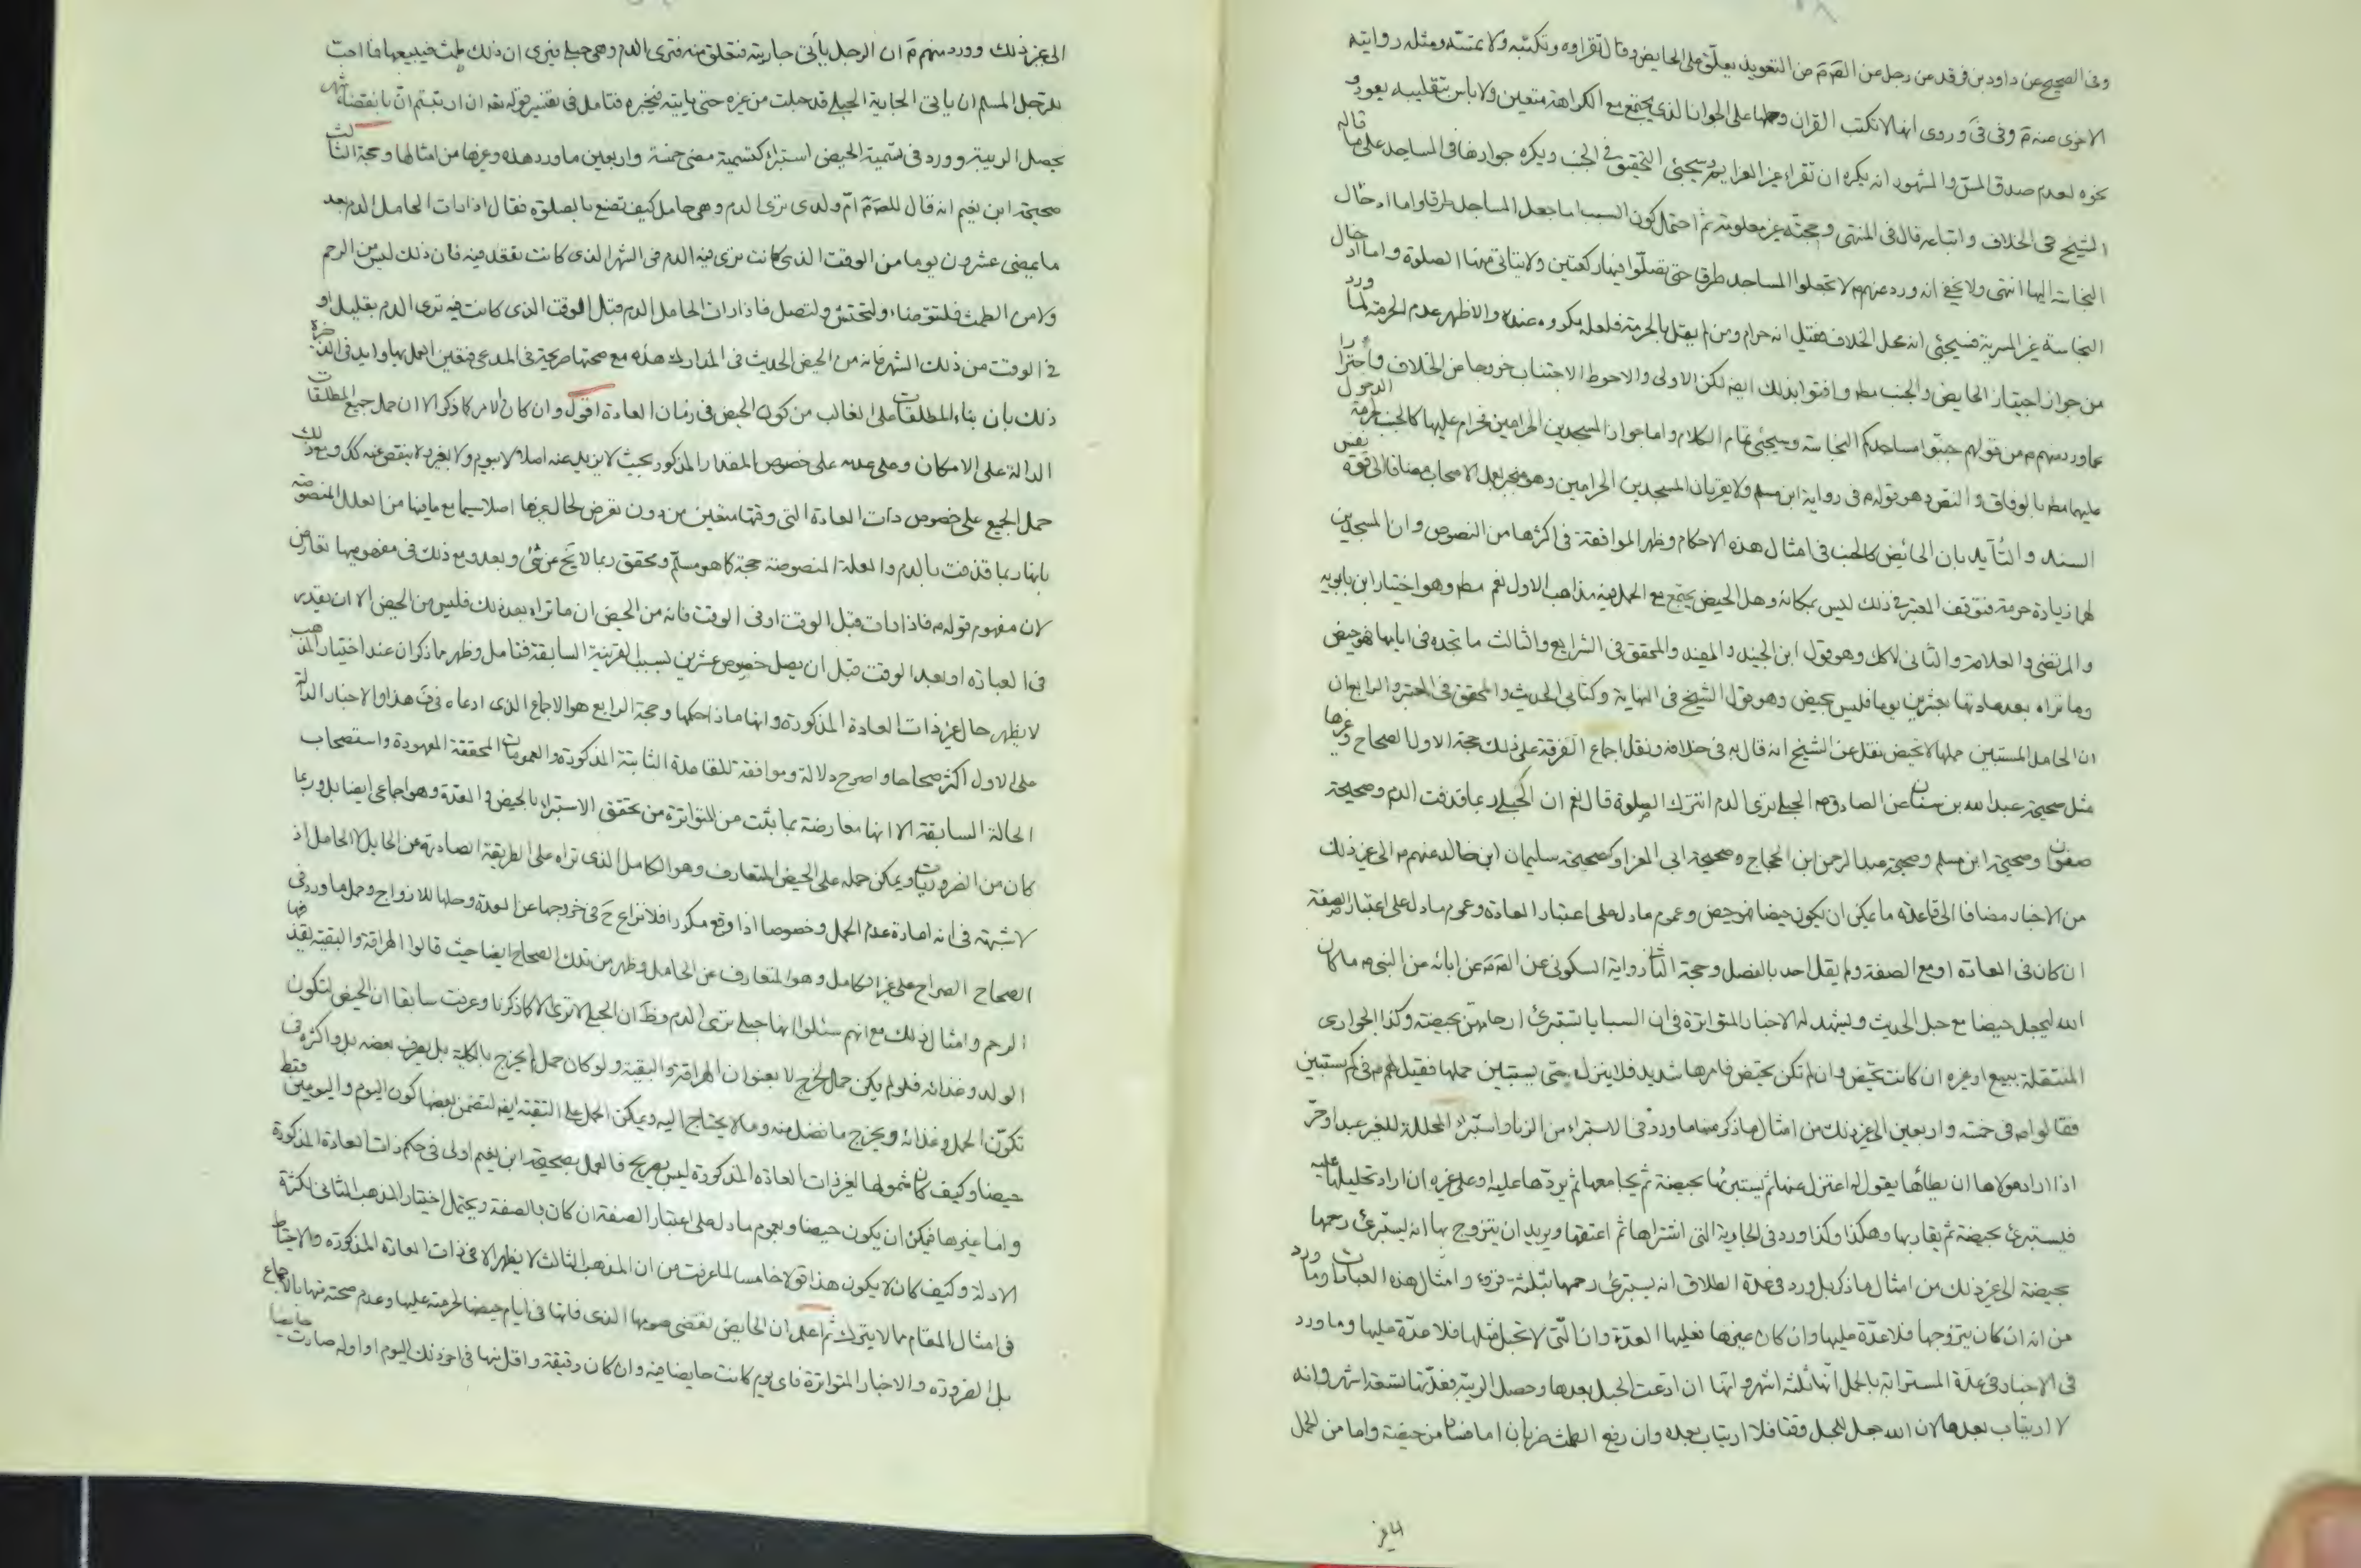 وفى الصحيح عن داود بن فرقد عن رجل عن الصَم َم عن التعويذ يعلّق على الحايض وقال تقراوه وتكتبه ولا تمسّه ومثله روايته
الاخرى عنه مَ وفى فىَ وروى انها لا تكتب القران وحملها على الجواز الذى يجتمع مع الكراهة متعين ولا باس بتقليبه بعود و
نحوه لعدم صدق المسّ والمشهور انه يكره ان تقراء غير العزايم وسيجئى التحقيق فى الجنب ويكره جوازها فى المساجد على ما قاله
الشيخ فى الخلاف واتباعه قال فى المنتهى وحجته غير معلومة ثم احتمل كون السبب اما جعل المساجد طرقا واما ادخال
النجاسة اليها انتهى ولا يخفى انه ورد عنهم م لا تجعلوا المساجد طرقا حتى تصلّوا فيها ركعتين ولا يتاتى منها الصلوة واما ادخال
النجاسة غير المسرية فسيجئى انه محل الخلاف فقيل انه حرام ومن لم يقل بالحرمة فلعله مكروه عنده والاظهر عدم الحرمة لما ورد
من جواز اجتياز الحايض والجنب مطه وافتوا بذلك ايضه لكن الاولى والاحوط الاجتناب خروجا عن الخلاف واحترازا
عما ورد منهم م من قولهم جنبّوا مساجدكم النجاسة وسيجئى تمام الكلام واما جواز المسجدين الحرامين فحرام عليها كالجنب لحرمة الدخول
عليهما مطه بالوفاق والنص وهو قوله م فى رواية ابن مسلم ولا يقربان المسجدين الحرامين وهو منجبر بعمل الاصحاب مضافا الى قوة نفس
السند والتأيد بان الحائض كالجنب فى امثال هذه الاحكام وظهر الموافقة فى اكثرها من النصوص وان المسجدين
لهما زيادة حرمة فتوقف المعتبر فى ذلك ليس بمكانه وهل الحيض يجتمع مع الحمل فيه مذاهب الاول نعم مطه وهو اختيار ابن بابويه
والمرتضى والعلامة والثانى لا كك وهو قول ابن الجنيد والمفيد والمحقق فى الشرايع والثالث ما تجده فى ايامها فهو حيض
وما تراه بعد عادتها بعشرين يوما فليس بحيض وهو قول الشيخ فى النهاية وكتابى الحديث والمحقق فى المعتبر والرابع ان
ان الحامل المستبين حملها لا تحيض نقل عن الشيخ انه قال به فى خلافه ونقل اجماع الفرقة على ذلك حجة الاول الصحاح وغيرها
مثل صحيحة عبد الله بن سنان عن الصادق م الحبلى ترى الدم اتترك الصلوة قال نعم ان الحبلى ربما قذفت الدم وصحيحة
صفوان وصحيحة ابن مسلم وصحيحة عبد الرحمن ابن الحجاج وصحيحة ابى المعزا وكصحيحة سليمان ابن خالد عنهم م الى غير ذلك
من الاخبار مضافا الى قاعدة ما يمكن ان يكون حيضا فهو حيض وعموم ما دل على اعتبار العادة وعموم ما دل على اعتبار الصفة
ان كان فى العادة او مع الصفة ولم يقل احد بالفصل وحجة الثانى رواية السكونى عن الصَم َم عن ابائه عن النبى م ما كان
الله ليجعل حيضا مع حبل الحديث ويشهد له الاخبار المتواترة فى ان السبايا تستبرئ ارحامهن بحيضة وكذا الجوارى
المنتقلة ببيع او غيره ان كانت تحيض وان لم تكن تحيض فامرها شديد فلا ينزل حتى يستبين حملها فقيل لهم م فى كم يستبين
فقالوا م فى خمسة واربعين الى غير ذلك من امثال ما ذكر منها ما ورد فى الاستبراء من الزنا واستبراء المحللة للغير عبدا او حرّ
اذا اراد مولاها ان يطاءها يقول له اعتزل عنها ثم يستبرئها بحيضة ثم يجامعها ثم يردّها عليه او على غيره ان اراد تحليلها عليه
فليستبرئ بحيضة ثم يقاربها وهكذا وكذا ورد فى الجارية التى اشتراها ثم اعتقها ويريد ان يتزوج بها انه ليستبرئ رحمها
بحيضة الى غير ذلك من امثال ما ذكر بل ورد فى عدة الطلاق انه يستبرئ رحمها بثلثة قروء وامثال هذه العبارات وما ورد
من انه ان كان يتزوجها فلا عدّة عليها وان كان غيرها فعليها العدّة وان الّتى لا تحبل مثلها فلا عدّة عليها وما ورد
فى الاخبار فى عدّة المسترابة بالحمل انها ثلثة اشهر وانها ان ادعت الحبل بعدها وحصل الريبة فعدّتها تسعة اشهر وانه
لا ارتياب بعدها لان الله جعل للحبل وقتا فلا ارتياب بعده وان رفع الطمث ضربان اما فساد من حيضة واما من الحمل
الى غير ذلك وورد منهم مَ ان الرجل يأتى جاريته فتعلق منه فترى الدم وهى حبلى فيرى ان ذلك طمث فيبيعها فما احبّ
للرجل المسلم ان ياتى الجارية الحبلى قد حبلت من غيره حتى ياتيه فيخبره فتامل فى تفسير قوله تعه ان ارتبتم انّ بانقضاء شهر
يحصل الريبة وورد فى تسمية الحيض استبراء كتسمية مضى خمسة واربعين ما ورد هذه وغيرها من امثالها وحجة الثالث
صحيحة ابن نعيم انه قال للصَم َم امّ ولدى ترى الدم وهى حامل كيف تصنع بالصلوة فقال اذا رات الحامل الدم بعد
ما يمضى عشرون يوما من الوقت الذى كانت ترى فيه الدم فى الشهر الذى كانت تقعد فيه فان ذلك ليس من الرحم
ولا من الطمث فلتتوضاء ولتحتش ولتصل فاذا رات الحامل الدم قبل الوقت الذى كانت فيه ترى الدم بقليل او
فى الوقت من ذلك الشهر فانه من الحيض الحديث فى المدارك هذه مع صحتها صريحة فى المدعى فتعين العمل بها وايد فى الذخيرة
ذلك بان بناء المطلقات على الغالب من كون الحيض فى زمان العادة اقول وان كان الامر كما ذكر الا ان حمل جميع المطلقات
الدالة على الامكان وعلى عدمه على خصوص المقدار المذكور بحيث لا يزيد عنه اصلا لا بيوم ولا بغيره لا ينقص عنه كك وبعد ذلك
حمل الجميع على خصوص ذات العادة التى وقتها متعين من دون تعرض لحال غيرها اصلا سيما مع ما فيها من العلل المنصوصة
بانها ربما قذفت بالدم والعلة المنصوصة حجة كما هو مسلّم ومحقق ربما لا يَخ عن شئ وبعد ومع ذلك فى مفهوميها تعارض
لان مفهوم قوله م فاذا رات قبل الوقت او فى الوقت فانه من الحيض ان ما تراه بعد ذلك فليس من الحيض الا ان يقدر
فى العبارة او بعد الوقت قبل ان يصل خصوص عشرين بسبب القرينة السابقة فتامل وظهر ما ذكر ان عند اختيار المذهب
لا يظهر حال غير ذات العادة المذكورة وانها ماذا حكمها وحجة الرابع هو الاجماع الذى ادعاه فى فَ هذا والاخبار الدالة
على الاول اكثر صحاحا واصرح دلالة وموافقة للقاعدة الثابتة المذكورة والعمومات المحققة المعهودة واستصحاب
الحالة السابقة الا انها معارضة بما بثت من المتواترة من تحقق الاستبراء بالحيض والعدة وهو اجماعى ايضا بل وربما
كان من الضروريات ويمكن حمله على الحيض المتعارف وهو الكامل الذى تراه على الطريقة الصادرة من الحايل لا الحامل اذ
لا شبهة فى انه امارة عدم الحمل وخصوصا اذا وقع مكررا فلا نزاع حَ فى خروجها عن العدة وحلها للازواج وحمل ما ورد فى
الصحاح الصراح على غير الكامل وهو المتعارف عن الحامل وظهر من تلك الصحاح ايضا حيث قالوا الهراقة والبقية تقذفها
الرحم وامثال ذلك مع انهم سئلوا انها حبلى ترى الدم وظَ ان الحبلى لا ترى الا كما ذكرنا وعرفت سابقا ان الحيض لتكون
الولد وغذائه فلو لم يكن حمل لخرج لا بعنوان الهراقة والبقية ولو كان حمل لم يخرج بالكلية بل يصرف بعضه بل واكثره فى
تكوّن الحمل وغذائه ويخرج ما فضل منه وما لا يحتاج اليه ويمكن الحمل على التقية ايضه لتضمن بعضها كون اليوم واليومين فقط
حيضا وكيف كان شمولها لغير ذات العادة المذكورة ليس بصريح فالعمل بصحيحة ابن نعيم اولى فى حكم ذات العادة المذكورة
واما غيرها فيمكن ان يكون حيضا وبعموم ما دل على اعتبار الصفة ان كان بالصفة ويحتمل اختيار المذهب الثانى لكثرة
الادلة وكيف كان لا يكون هذا قولا خامسا لما عرفت من ان المذهب الثالث لا يظهر الا فى ذات العادة المذكورة والاحتياط
فى امثال المقام مما لا يترك ثم اعلم ان الحايض تقضى صومها الذى فاتها فى ايام حيضها لحرمته عليها وعدم صحته منها بالاجماع
بل الضرورة والاخبار المتواترة فاى يوم كانت حايضا فيه وان كان دقيقة واقل منها فى اخر ذلك اليوم او اوله صارت حايضا